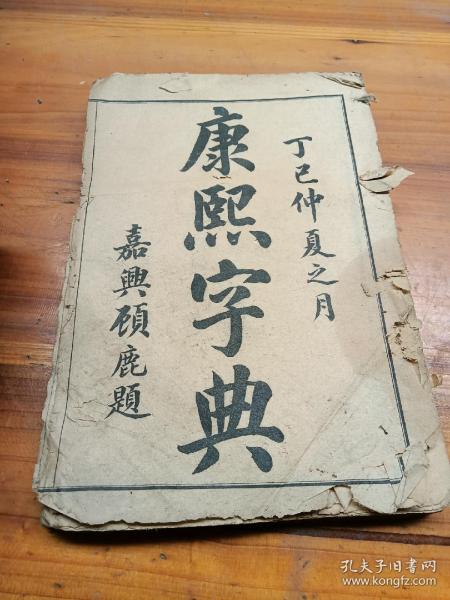 丁巳仲夏之月
康熙字典
嘉興顾鹿題
孔夫子旧书网
www.kongfz.com